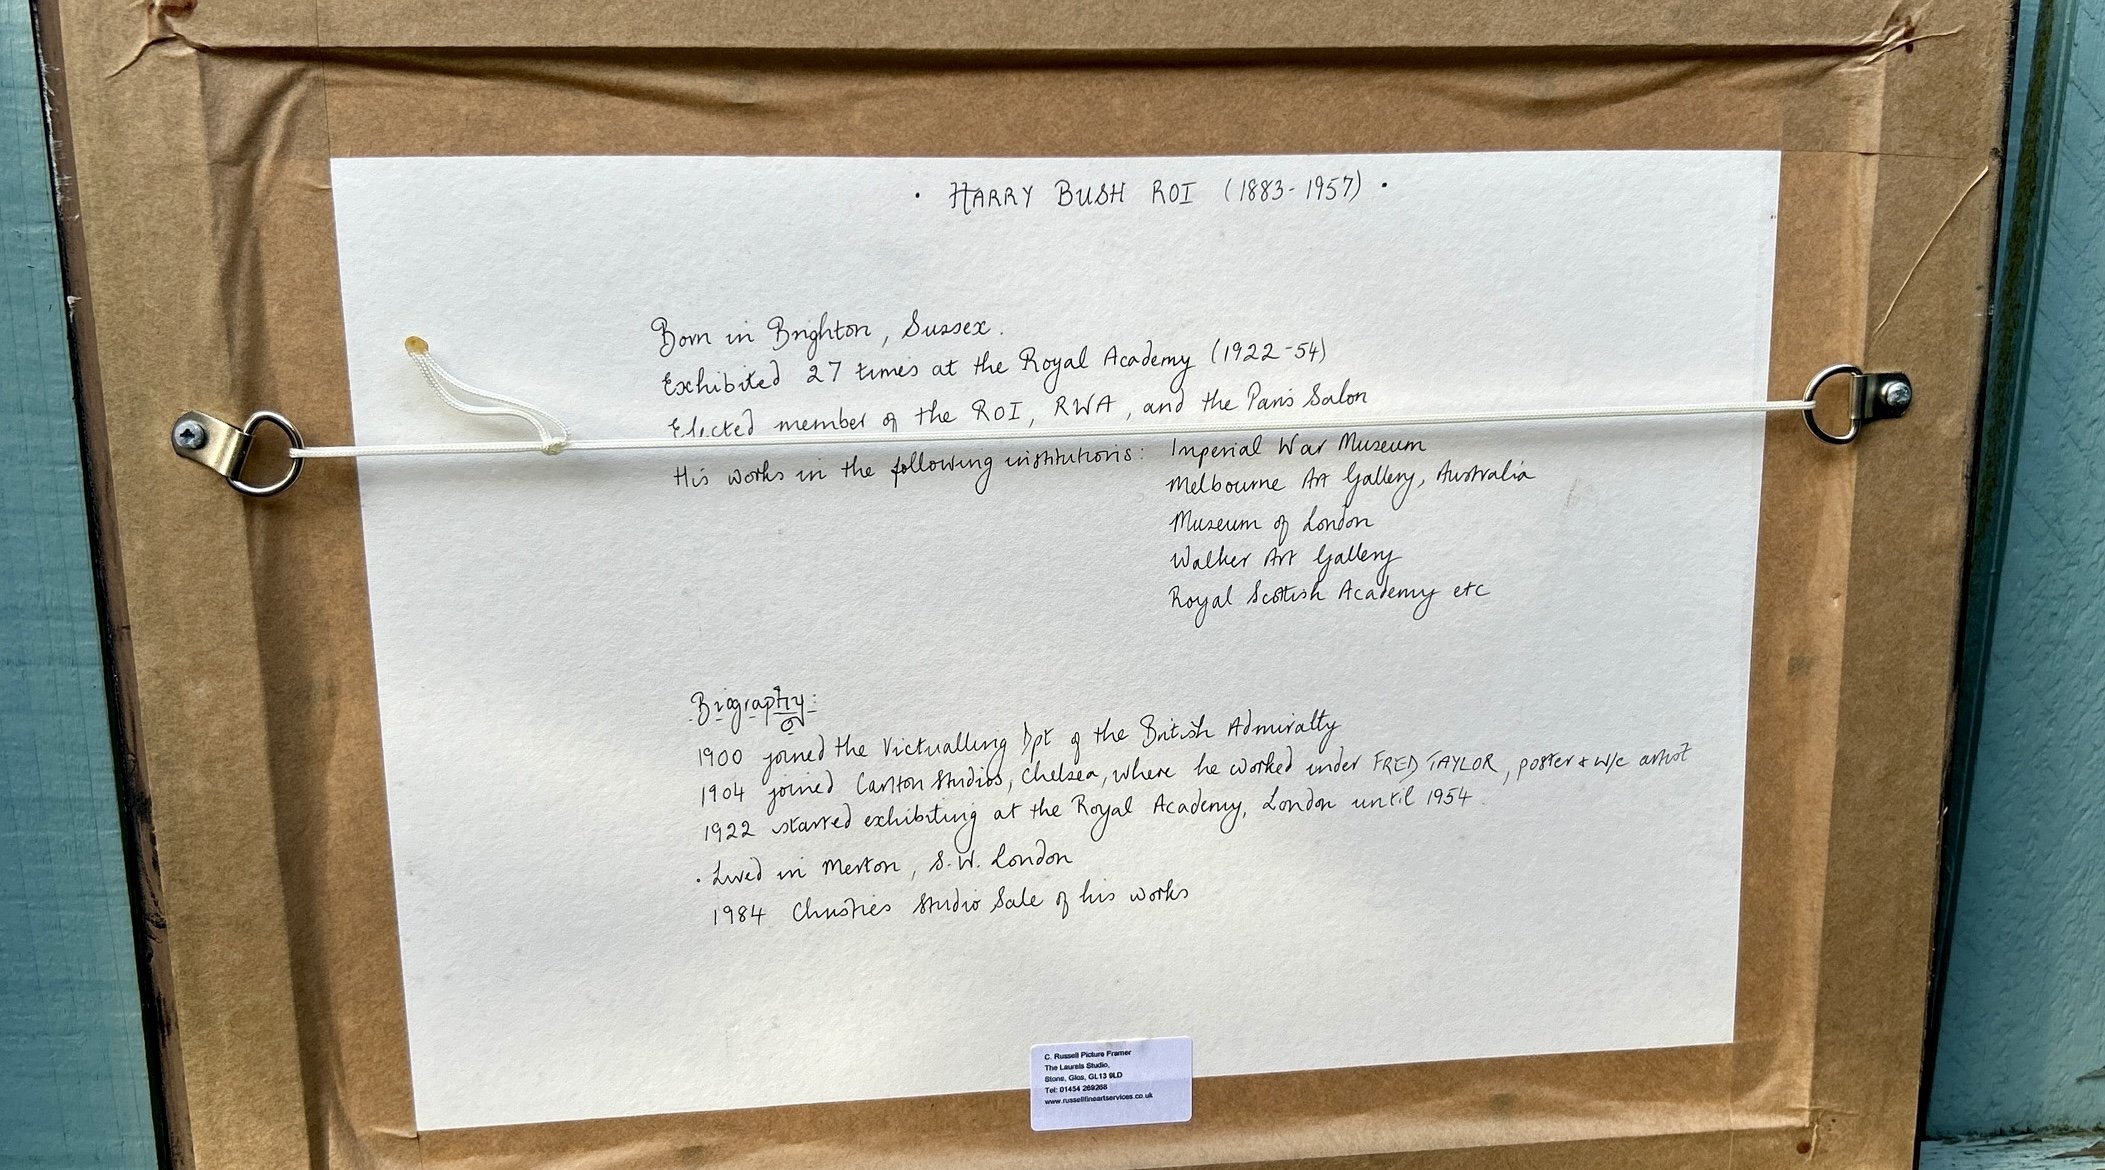 · HARRY BUSH ROI (1883-1957) ·
Born in Brighton, Sussex.
Exhibited 27 times at the Royal Academy (1922-54)
Elected member of the ROI, RWA, and the Paris Salon
His works in the following institutions: Imperial War Museum
Melbourne Art Gallery, Australia
Museum of London
Walker Art Gallery
Royal Scottish Academy etc
Biography:
1900 joined the Victualling Dpt of the British Admiralty
1904 joined Carlton Studios, Chelsea, where he worked under FRED TAYLOR, poster & w/c artist
1922 started exhibiting at the Royal Academy, London until 1954.
· Lived in Merton, S.W. London
1984 Christies Studio Sale of his works
C. Russell Picture Framer
The Laurels Studio,
Stone, Glos, GL13 9LD
Tel: 01454 269268
www.russellfineartservices.co.uk